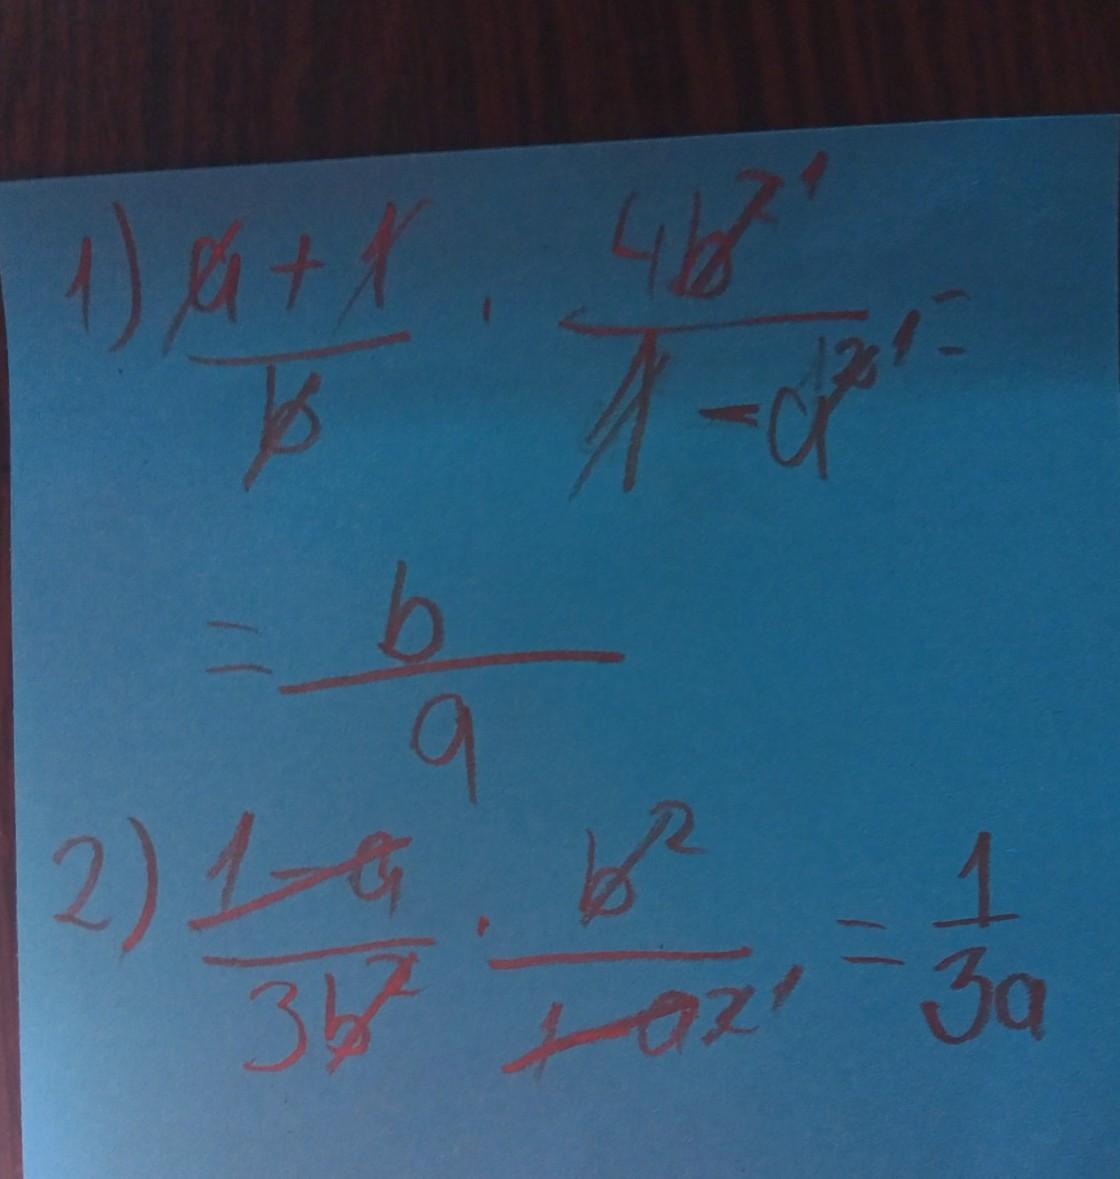 1) a + 1 / b · 4b² ¹ / 1 - a² ¹ =
= b / a
2) 1 - a / 3b² · b² / 1 - a² ¹ = 1 / 3a